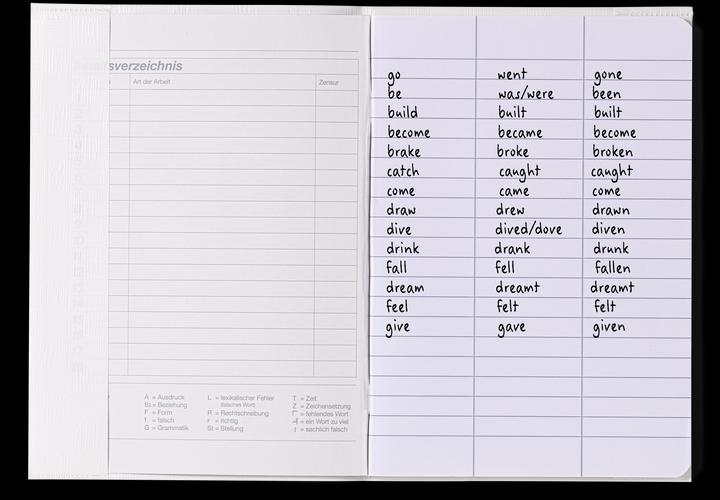 sverzeichnis
Art der Arbeit Zensur
A = Ausdruck L = lexikalischer Fehler T = Zeit
Bz = Beziehung (falsches Wort) Z = Zeichensetzung
F = Form R = Rechtschreibung Γ = fehlendes Wort
f = falsch r = richtig ⊣ = ein Wort zu viel
G = Grammatik St = Stellung I = sachlich falsch
go went gone
be was/were been
build built built
become became become
brake broke broken
catch caught caught
come came come
draw drew drawn
dive dived/dove diven
drink drank drunk
fall fell fallen
dream dreamt dreamt
feel felt felt
give gave given